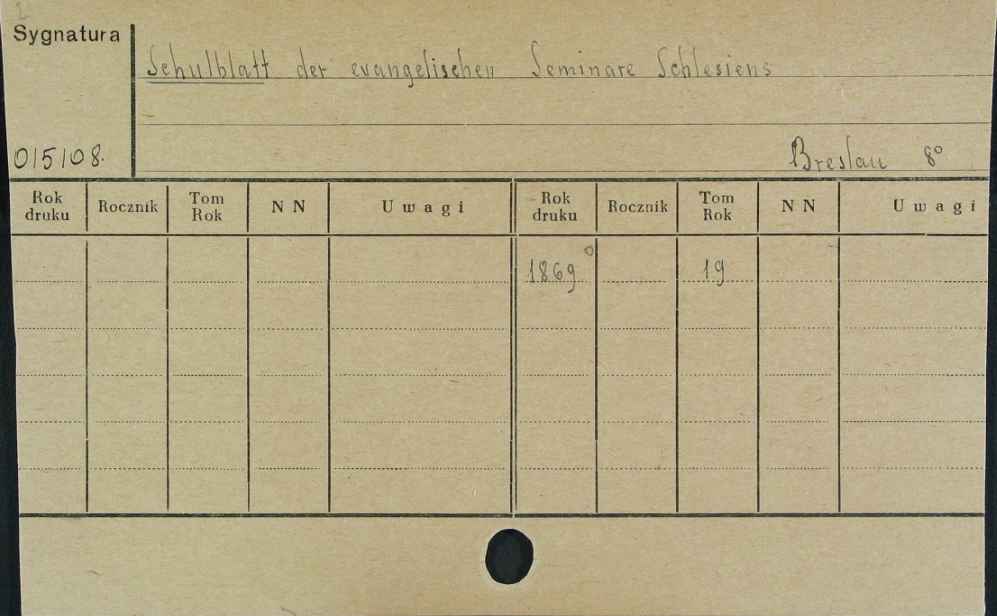 2
Sygnatura
Schulblatt der evangelischen Seminare Schlesiens
015108.
Breslau 8°
Rok druku Rocznik Tom Rok NN Uwagi Rok druku Rocznik Tom Rok NN Uwagi
1869° 19